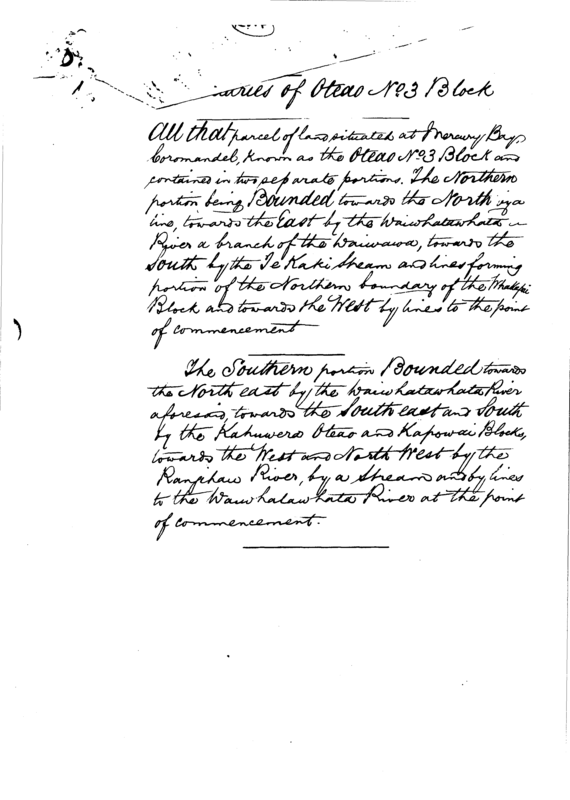 aries of Oteao No3 Block
All that parcel of land situated at Mercury Bay,
Coromandel, known as the Oteao No3 Block and
contained in two separate portions. The Northern
portion being Bounded towards the North by a
line, towards the East by the Waiwhatawhata
River a branch of the Waiwawa, towards the
South by the Te Kaki Stream and lines forming
portion of the Northern boundary of the
Block and towards the West by lines to the point
of commencement
The Southern portion Bounded towards
the North east by the Waiwhatawhata River
aforesaid, towards the South east and South
by the Kahuwera Oteao and Kapowai Blocks,
towards the West and North West by the
River, by a Stream and by lines
to the Waiwhatawhata River at the point
of commencement.